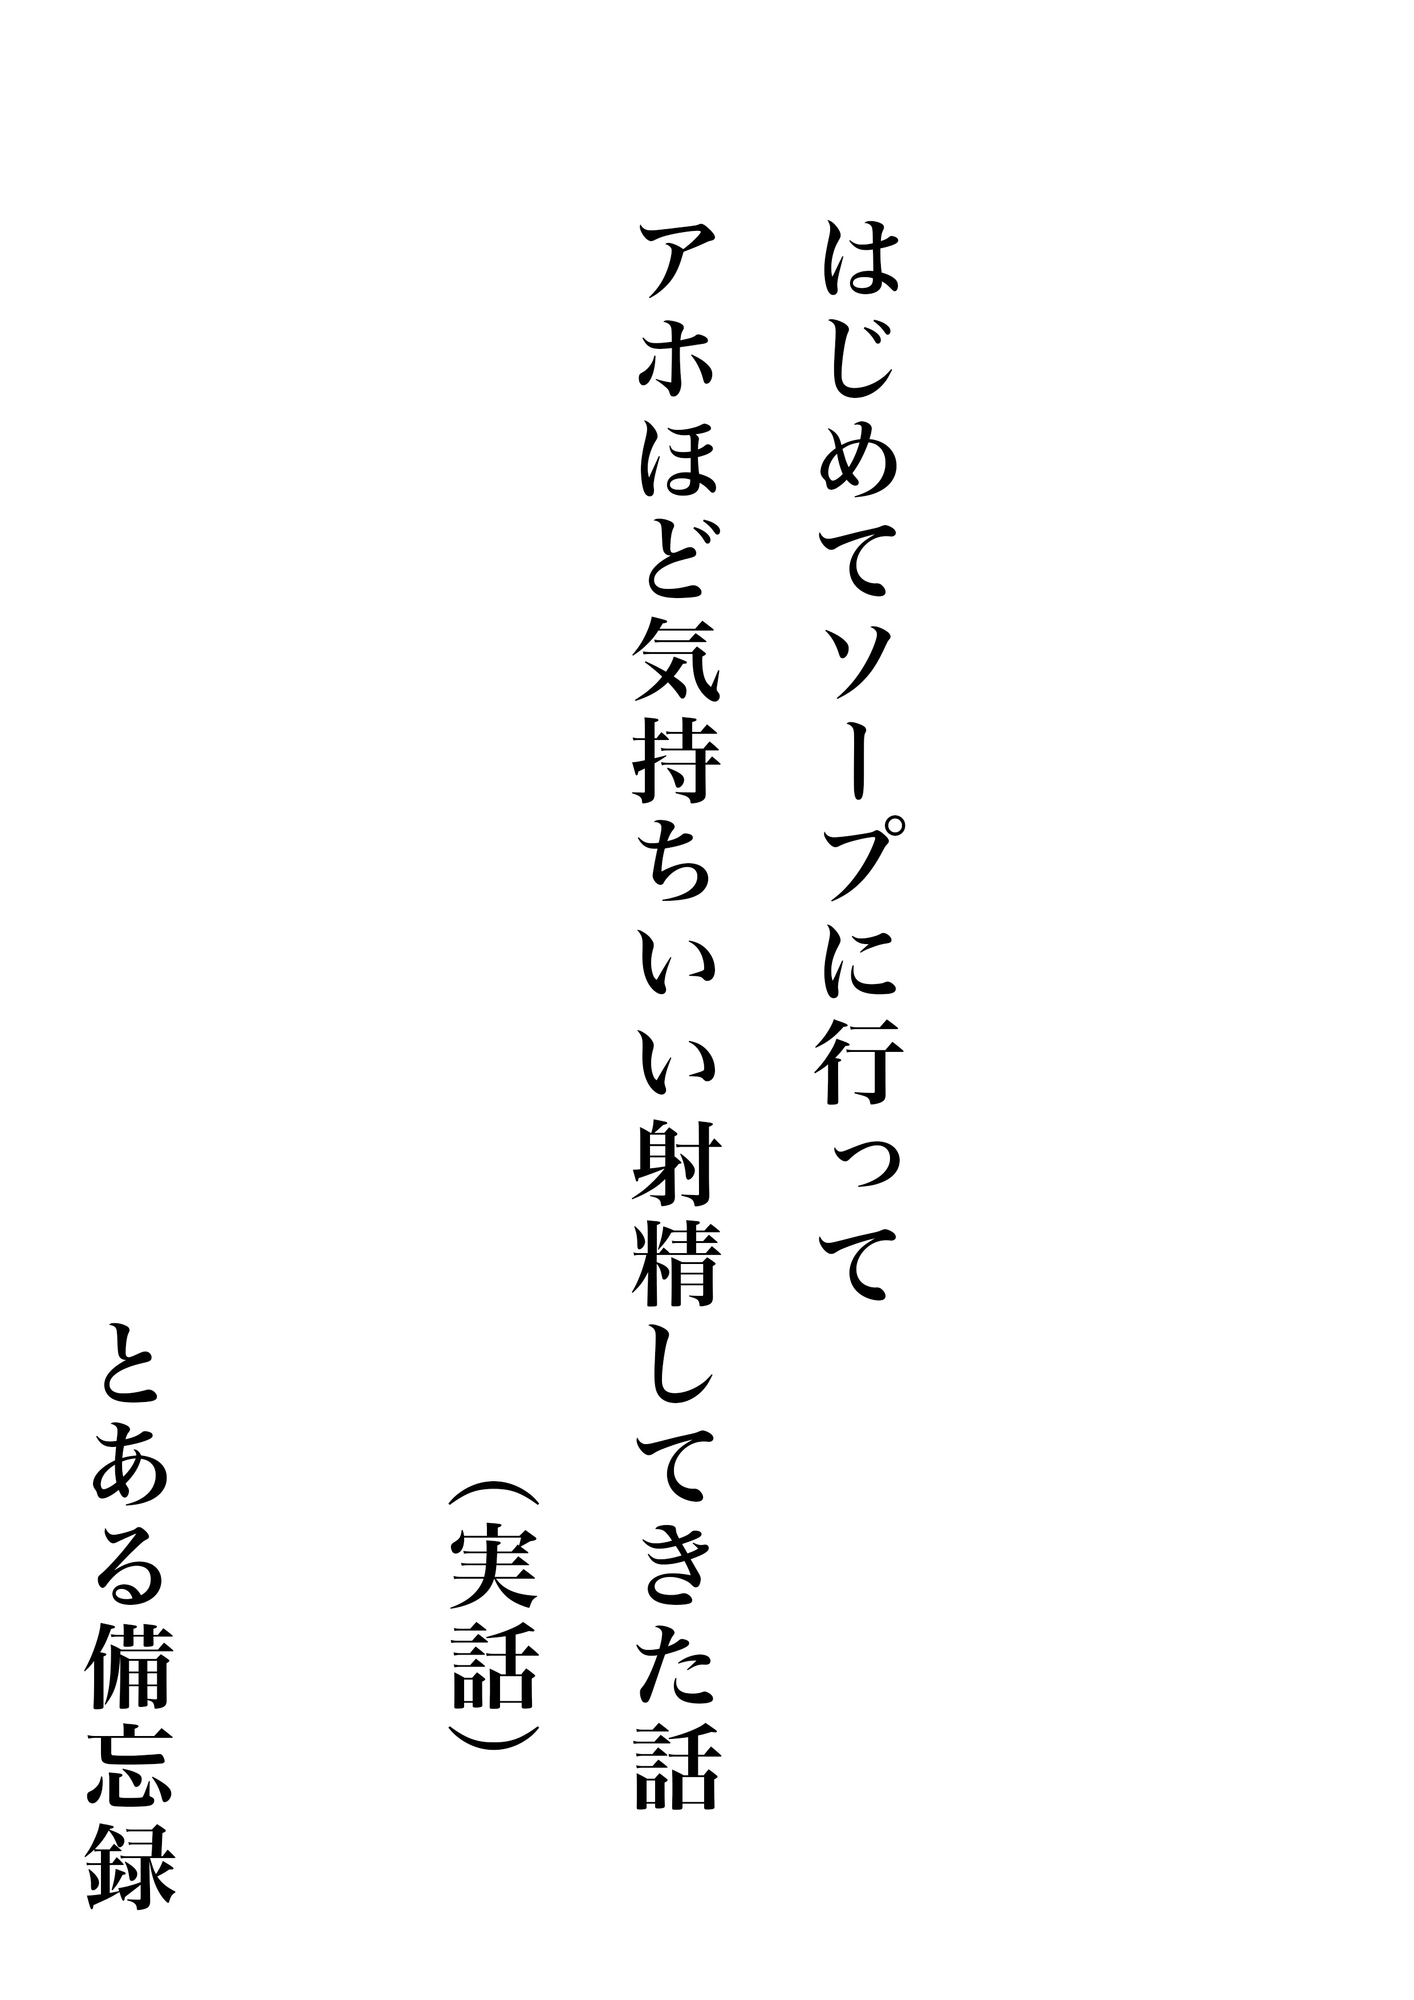 はじめてソープに行って
アホほど気持ちいい射精してきた話
（実話）
とある備忘録